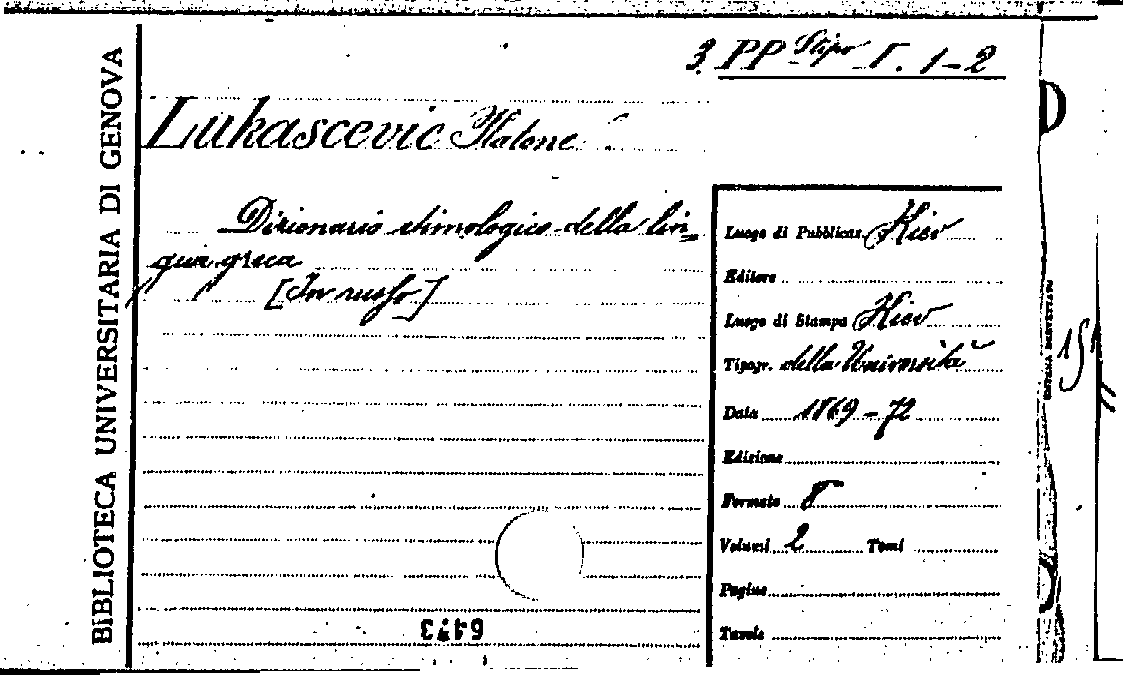 3. PP Stipo Γ. 1-2
Lukascevic Platone
Dizionario etimologico della lin=
gua greca
[In russo]
BIBLIOTECA UNIVERSITARIA DI GENOVA
Luogo di Pubblicaz. Kiev
Editore
Luogo di Stampa Kiev
Tipogr. della Università
Data 1869-72
Edizione
Formato 8°
Volumi 2 Tomi
Pagine
Tavole
6473